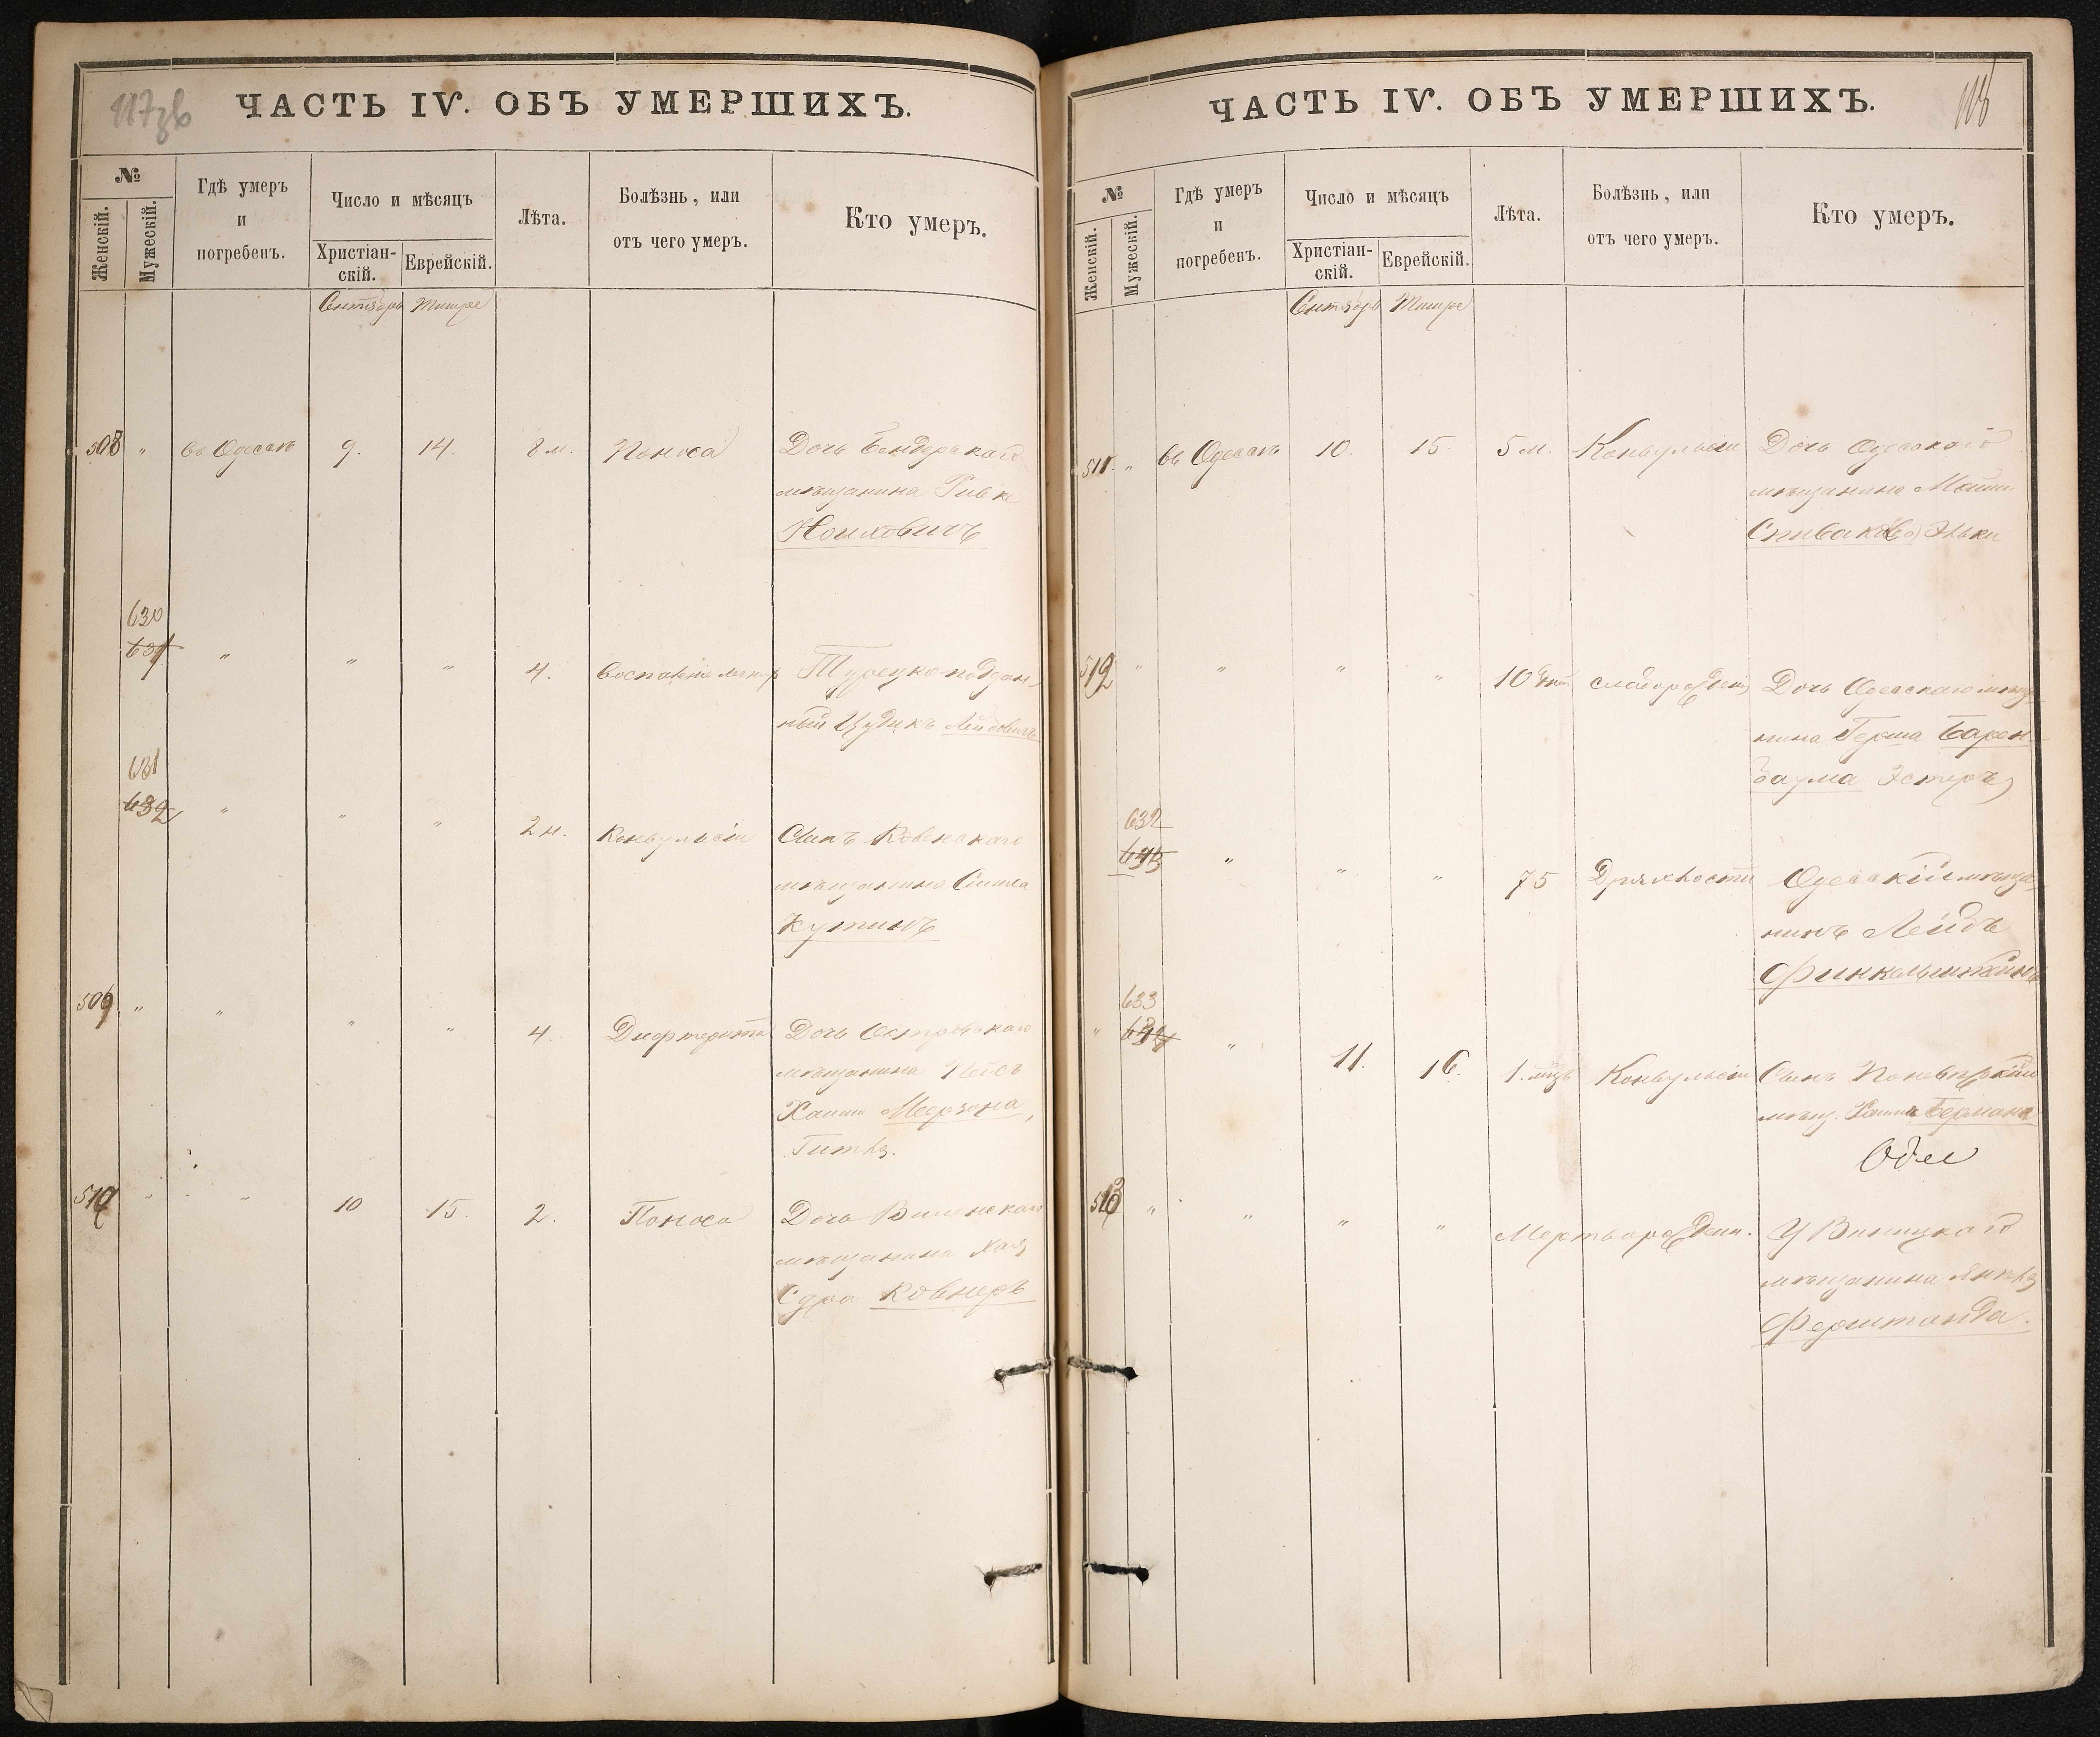 ЧАСТЬ IV. ОБЪ УМЕРШИХЪ.
№
Женскій.
Мужескій.
Гдѣ умеръ
и
погребенъ.
Число и мѣсяцъ
Христіан-
скій.
Еврейскій.
Лѣта.
Болѣзнь, или
отъ чего умеръ.
Кто умеръ.
Сентябрь Тишре
508 " въ Одессѣ 9. 14. 8 м. Поноса Дочь Бендерскаго
мѣщанина Ривке
Ноиховичъ
630
631 " " " 4. Воспаленіе Турецко-поддан-
ный Цудикъ Лейбовичъ
631
632 " " " 2 н. Конвульсіи Сынъ Ковенскаго
мѣщанина
Кутинъ
509 " " " " 4. Дифтерита Дочь Островскаго
мѣщанина
Хаима Меерзона,
510 " " 10 15. 2. Поноса Дочь Виленскаго
мѣщанина Хая
Сура Ковнеръ
ЧАСТЬ IV. ОБЪ УМЕРШИХЪ.
118
№
Женскій.
Мужескій.
Гдѣ умеръ
и
погребенъ.
Число и мѣсяцъ
Христіан-
скій.
Еврейскій.
Лѣта.
Болѣзнь, или
отъ чего умеръ.
Кто умеръ.
Сентябрь Тишре
511. " въ Одессѣ 10. 15. 5 м. Конвульсіи Дочь Одесскаго
мѣщанина
Спивакова Эльки
512 " " " " 10 дней слаборожден. Дочь Одесскаго мѣща-
нина Герша Барен-
баума Эстеръ
632
" " " 75 Дряхлости Одесскій мѣща-
нинъ Лейбъ
Финкельштейнъ
633
" " 11. 16. 1. мѣсъ Конвульсіи Сынъ
мѣщ. Хаима Германа
Одел
513 " " " " Мертворожден. У Винницкаго
мѣщанина Янкеля
Ферштанда.